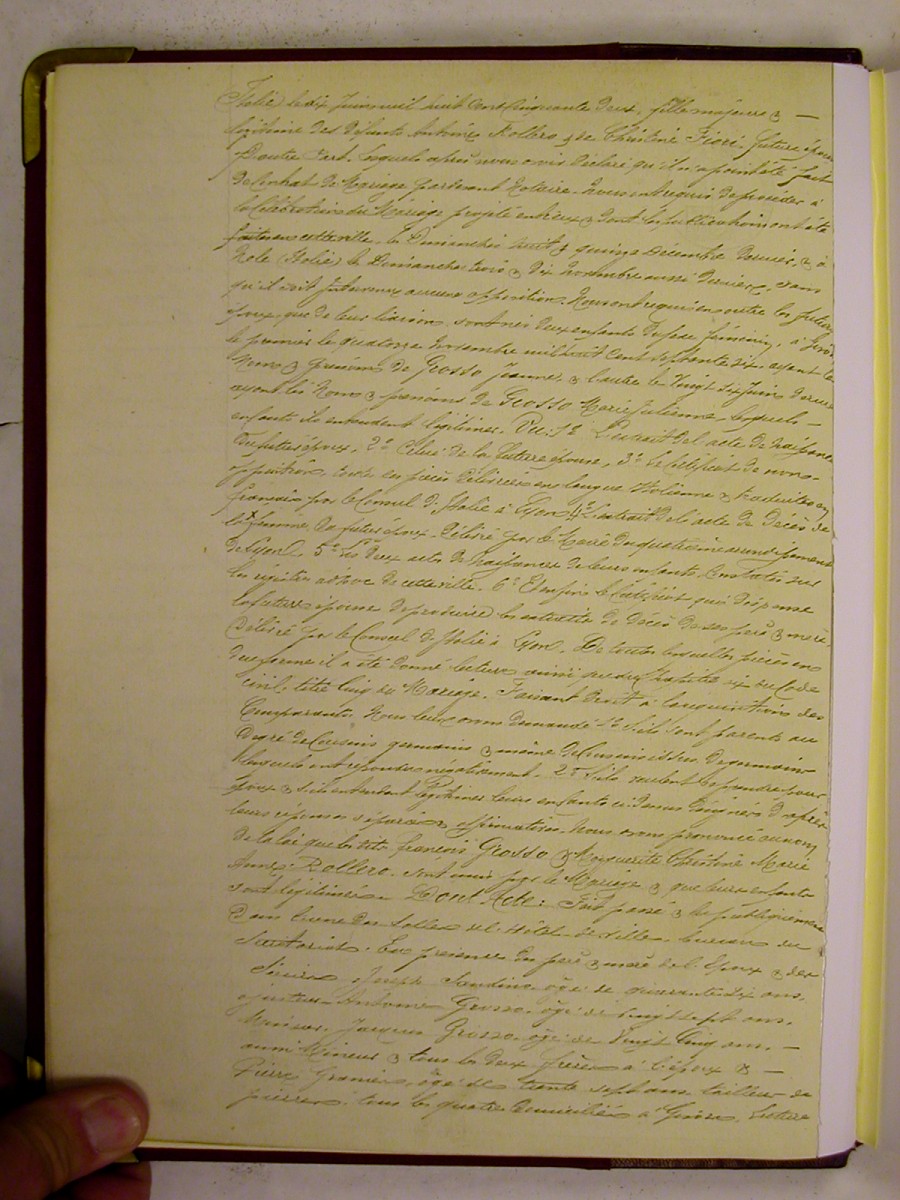 Italie) le dix Juin mil huit cent cinquante deux, fille majeure &
légitime des défunts Antoine Rollero & de Christine Fiori, future épouse
d'autre Part, lesquels après nous avoir déclaré qu'il n'a point été fait
de Contrat de Mariage pardevant Notaire. Nous ont requis de procéder à
la Célébration du Mariage projeté entr'eux & dont les publications ont été
faites en cette ville, les Dimanches huit & quinze Décembre dernier, & à
Nole (Italie) les Dimanches trois & dix Novembre aussi dernier, sans
qu'il soit intervenu aucune opposition. Nous ont requis en outre les futurs
époux que de leur liaison, sont nés deux enfants du sexe féminin, à Givors
le premier le quatorze Novembre mil huit cent soixante dix, ayant les
Noms & prénoms de Grosso Jeanne, & l'autre le vingt six Juin dernier
ayant les Noms & prénoms de Grosso Marie Julienne, lesquels
enfants ils entendent légitimer. Vu: 1° L'extrait de l'acte de Naissance
du futur époux, 2° Celui de la future épouse, 3° Le Certificat de non-
opposition, toutes ces pièces délivrées en langue Italienne & traduites en
français par le Consul d'Italie à Lyon, 4° L'extrait de l'acte de Décès de
la 1re femme du futur époux, délivré par le Maire du quatrième arrondissement
de Lyon. 5° Les deux actes de Naissances de leurs enfants, Constatés sur
les régistres ad hoc de cette ville. 6° Et enfin le Certificat qui dispense
la future épouse de produire les extraits de décès de ses père & mère
délivré par le Consul d'Italie à Lyon. De toutes lesquelles pièces en
due forme il a été donné lecture ainsi que du Chapitre six du Code
Civil, titre Cinq du Mariage. Faisant droit à la réquisition des
Comparants, Nous leur avons demandé 1° s'ils sont parents au
degré de Cousins germains & même de Cousins issus de germains
lesquels ont répondu négativement. 2° S'ils veulent se prendre pour
époux & s'ils entendent légitimer leurs enfants ci-dessus désignés d'après
leurs réponses séparées & affirmatives, Nous avons prononcé au nom
de la loi que lesdits François Grosso & Marguerite Christine Marie
Anne Rollero. sont unis par le Mariage & que leurs enfants
sont légitimés. Dont Acte: Fait passé & lu publiquement
dans l'une des salles de l'Hôtel-de-ville, bureau du
Secrétariat. En présence des père & mère de l'Epoux & des
Sieurs Joseph Sandino, âgé de quarante six ans,
Antoine Grosso, âgé de vingt sept ans,
Mineur, Jacques Grosso, âgé de Vingt Cinq ans,
aussi Mineur & tous les deux frères à l'époux &
Pierre Granier, âgé de trente sept ans, tailleur de
pierres, tous les quatre domiciliés à Givors, Lecture